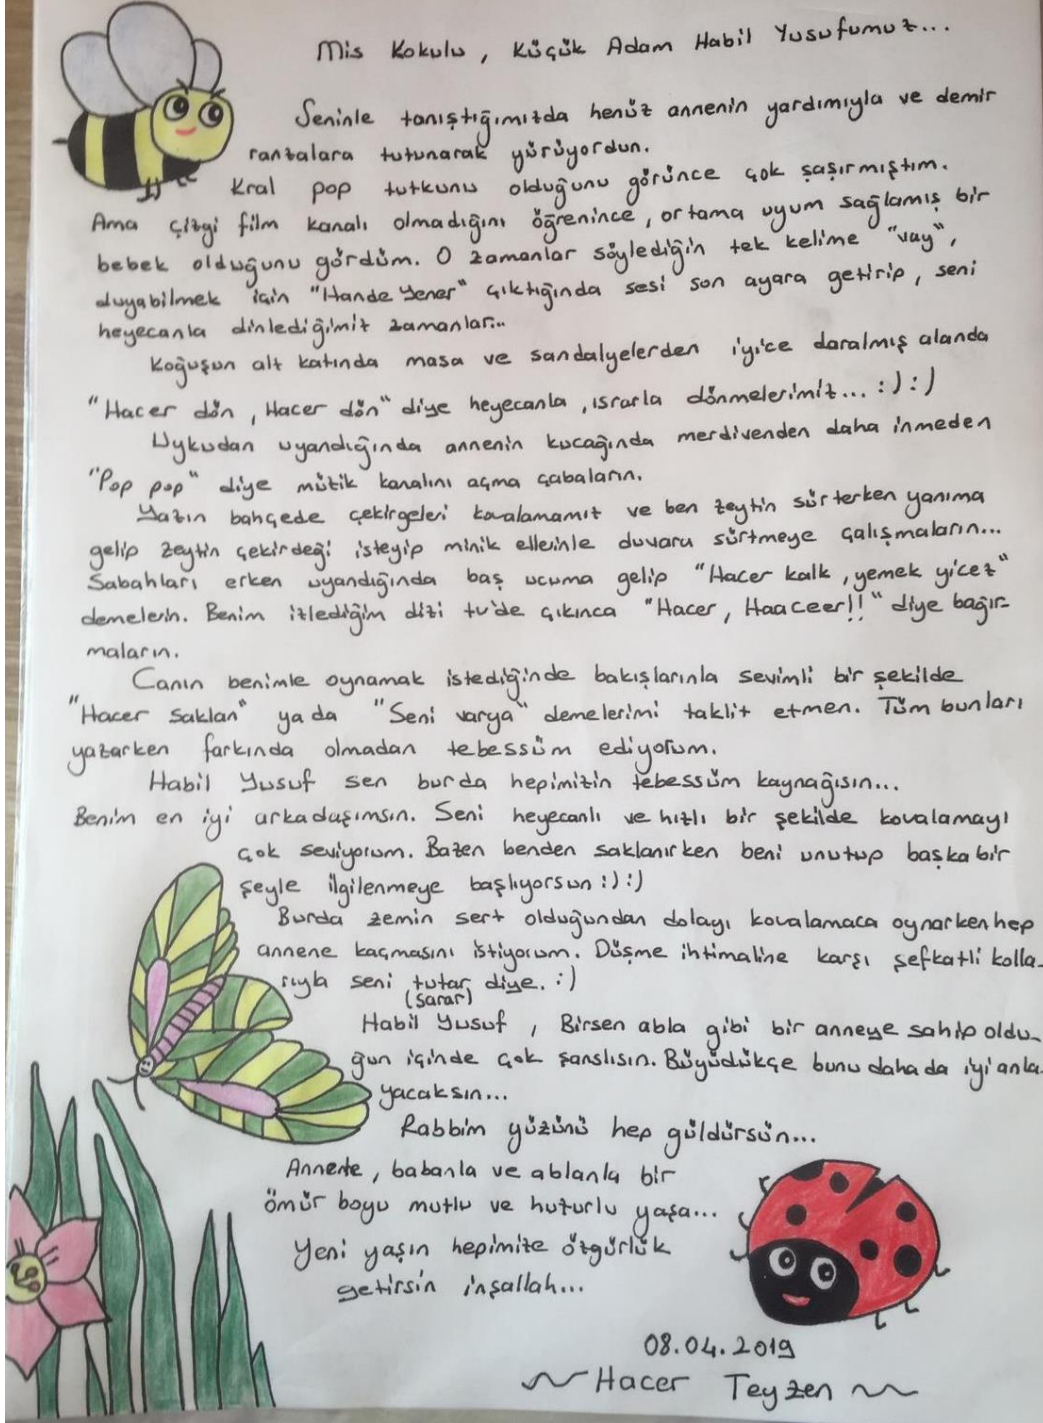 Mis Kokulu, Küçük Adam Habil Yusufumuz...
Seninle tanıştığımızda henüz annenin yardımıyla ve demir
ranzalara tutunarak yürüyordun.
Kral pop tutkunu olduğunu görünce çok şaşırmıştım.
Ama çizgi film kanalı olmadığını öğrenince, ortama uyum sağlamış bir
bebek olduğunu gördüm. O zamanlar söylediğin tek kelime "vay",
duyabilmek için "Hande Yener" çıktığında sesi son ayara getirip, seni
heyecanla dinlediğimiz zamanlar...
Koğuşun alt katında masa ve sandalyelerden iyice daralmış alanda
"Hacer dön, Hacer dön" diye heyecanla, ısrarla dönmelerimiz... :) :)
Uykudan uyandığında annenin kucağında merdivenden daha inmeden
"Pop pop" diye müzik kanalını açma çabaların.
Yazın bahçede çekirgeleri kovalamamız ve ben zeytin sürterken yanıma
gelip zeytin çekirdeği isteyip minik ellerinle duvara sürtmeye çalışmaların...
Sabahları erken uyandığında baş ucuma gelip "Hacer kalk, yemek yicez"
demelerin. Benim izlediğim dizi tv'de çıkınca "Hacer, Haaceer!!" diye bağır-
maların.
Canın benimle oynamak istediğinde bakışlarınla sevimli bir şekilde
"Hacer Saklan" ya da "Seni varya" demelerimi taklit etmen. Tüm bunları
yazarken farkında olmadan tebessüm ediyorum.
Habil Yusuf sen burda hepimizin tebessüm kaynağısın...
Benim en iyi arkadaşımsın. Seni heyecanlı ve hızlı bir şekilde kovalamayı
çok seviyorum. Bazen benden saklanırken beni unutup başka bir
şeyle ilgilenmeye başlıyorsun :) :)
Burda zemin sert olduğundan dolayı kovalamaca oynarken hep
annene kaçmasını istiyorum. Düşme ihtimaline karşı şefkatli kolla-
rıyla seni tutar diye. :)
(sarar)
Habil Yusuf, Birsen abla gibi bir anneye sahip oldu-
ğun içinde çok şanslısın. Büyüdükçe bunu daha da iyi anla-
yacaksın...
Rabbim yüzünü hep güldürsün...
Annenle, babanla ve ablanla bir
ömür boyu mutlu ve huzurlu yaşa...
Yeni yaşın hepimize özgürlük
getirsin inşallah...
08.04.2019
~Hacer Teyzen~